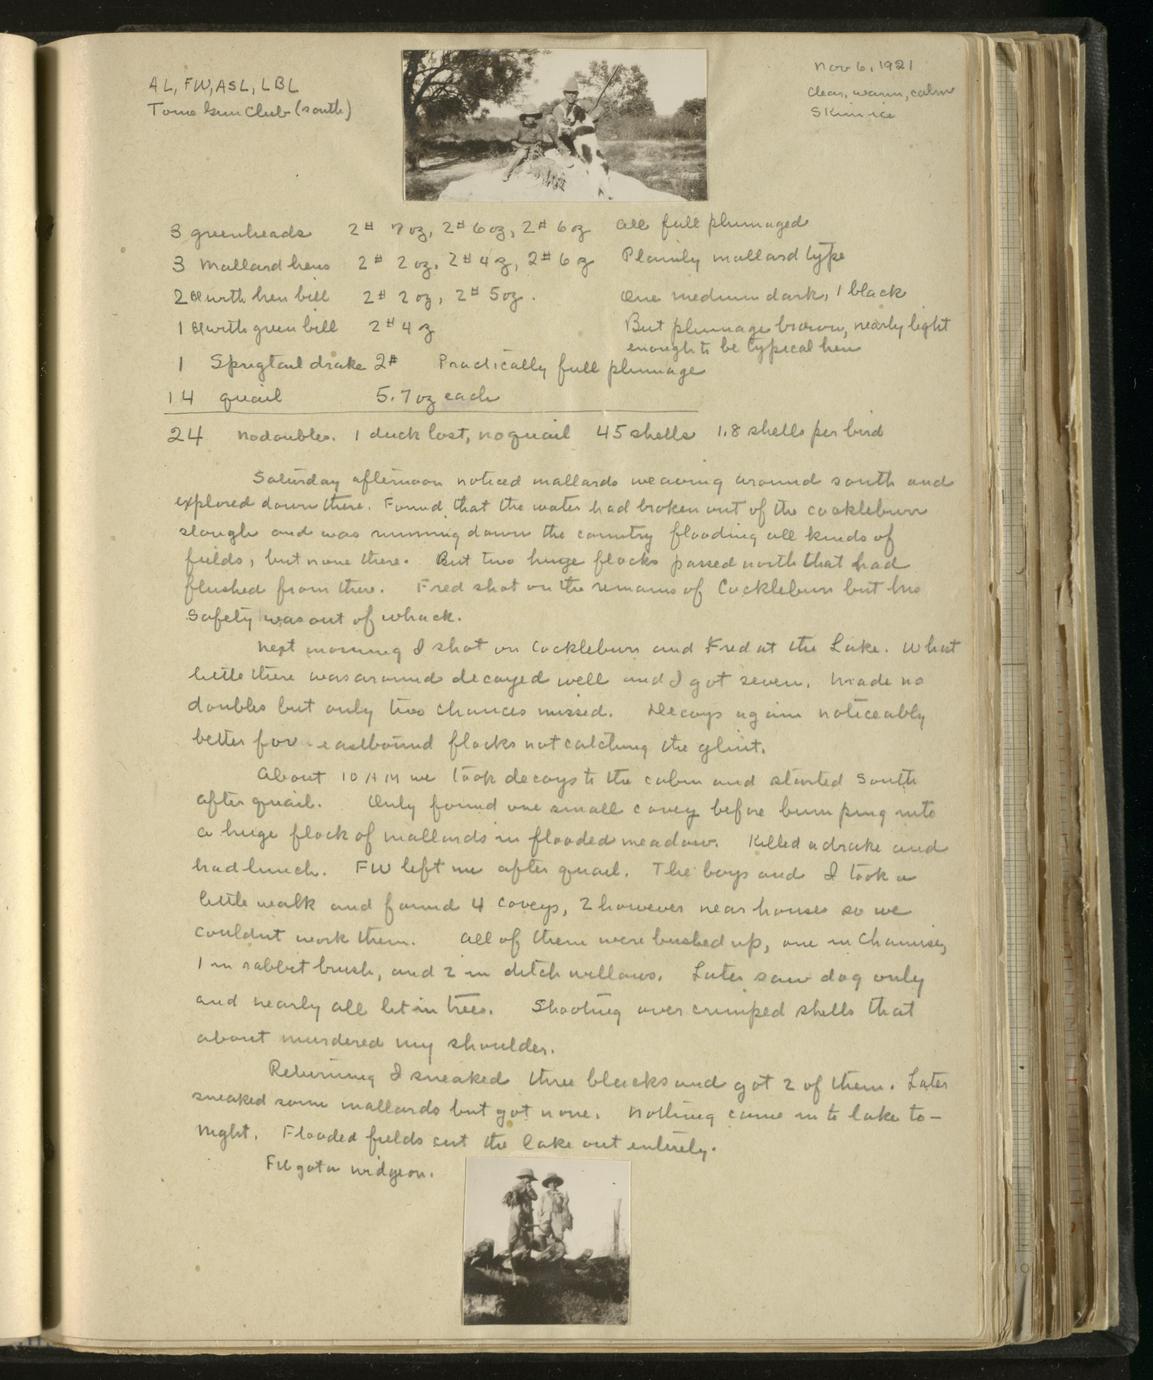 AL, FW, ASL, LBL
Tome Gun Club (south)
Nov 6, 1921
Clear, warm, calm
Skim ice
3 greenheads 2# 7 oz, 2# 6 oz, 2# 6 oz all full plumaged
3 Mallard hens 2# 2 oz, 2# 4 z, 2# 6 z Plainly mallard type
2 Bl with hen bill 2# 2 oz, 2# 5 oz. One medium dark, 1 black
1 Bl with green bill 2# 4 z But plumage brown, nearly light
enough to be typical hen
1 Sprigtail drake 2# Practically full plumage
14 quail 5.7 oz each
24 no doubles. 1 duck lost, no quail 45 shells 1.8 shells per bird
Saturday afternoon noticed mallards weaving around south and
explored down there. Found that the water had broken out of the cocklebur
slough and was running down the country flooding all kinds of
fields, but none there. But two huge flocks passed north that had
flushed from there. Fred shot on the remains of Cocklebur but his
safety was out of whack.
Next morning I shot on Cocklebur and Fred at the Lake. What
little there was around decoyed well and I got seven. Made no
doubles but only two chances missed. Decoys again noticeably
better for eastbound flocks not catching the glint.
About 10 AM we took decoys to the cabin and started south
after quail. Only found one small covey before bumping into
a huge flock of mallards in flooded meadow. Killed a drake and
had lunch. FW left me after quail. The boys and I took a
little walk and found 4 coveys, 2 however near houses so we
couldnt work them. All of them were bushed up, one in Chamise,
1 in rabbit brush, and 2 in ditch willows. Later saw dog only
and nearly all lit in trees. Shooting over crimped shells that
about murdered my shoulder.
Returning I sneaked three blacks and got 2 of them. Later
sneaked some mallards but got none. Nothing came in to lake to-
night. Flooded fields cut the lake out entirely.
FW got a widgeon.